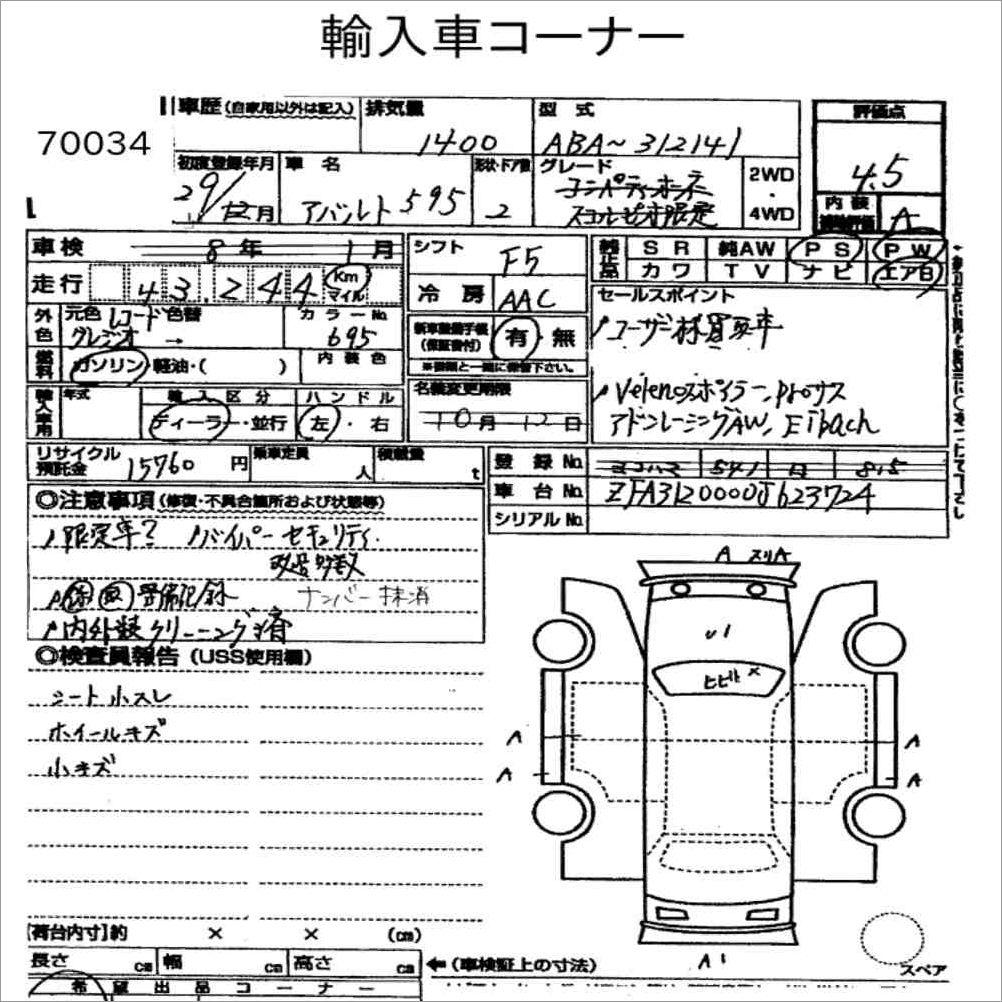 輸入車コーナー
70034
車歴(自家用以外は記入)
排気量 1400
型式 ABA~312141
評価点 4.5
初度登録年月 29/12月
車名 アバルト595
形状・ドア数 2
グレード コンペティオーネ
スコルピオ限定
2WD・4WD
内装 A
車検 8年1月
シフト F5
純正品 SR 純AW PS PW
カワ TV ナビ エア白
走行 43,244 Km マイル
冷房 AAC
セールスポイント
外色 元色 レコード 色替
グレジオ →
カラーNo. 695
新車整備手帳(保証書付) 有・無
※書類と一緒に保管下さい。
ユーザー様買取車
燃料 ガソリン・軽油・( )
内装色
名義変更期限
10月12日
Velenoスポイラー, Proサス
アドバンレーシングAW, Eibach
輸入車用 年式
輸入区分 ディーラー・並行
ハンドル 左・右
リサイクル預託金 15760円
乗車定員 人
積載量 t
登録No. ヨコハマ 541 ロ 815
車台No. ZFA3120000J623724
シリアルNo.
◎注意事項(修復・不具合箇所および状態等)
限定車? バイパーセキュリティ
改造多数
保 取 整備記録 ナンバー抹消
内外装クリーニング済
◎検査員報告(USS使用欄)
シート小スレ
ホイールキズ
小キズ
A スリA
U1
ヒビ小 ×
A A
A A
A1
スペア
[荷台内寸]約 × × (cm)
長さ cm 幅 cm 高さ cm
←(車検証上の寸法)
希望出品コーナー